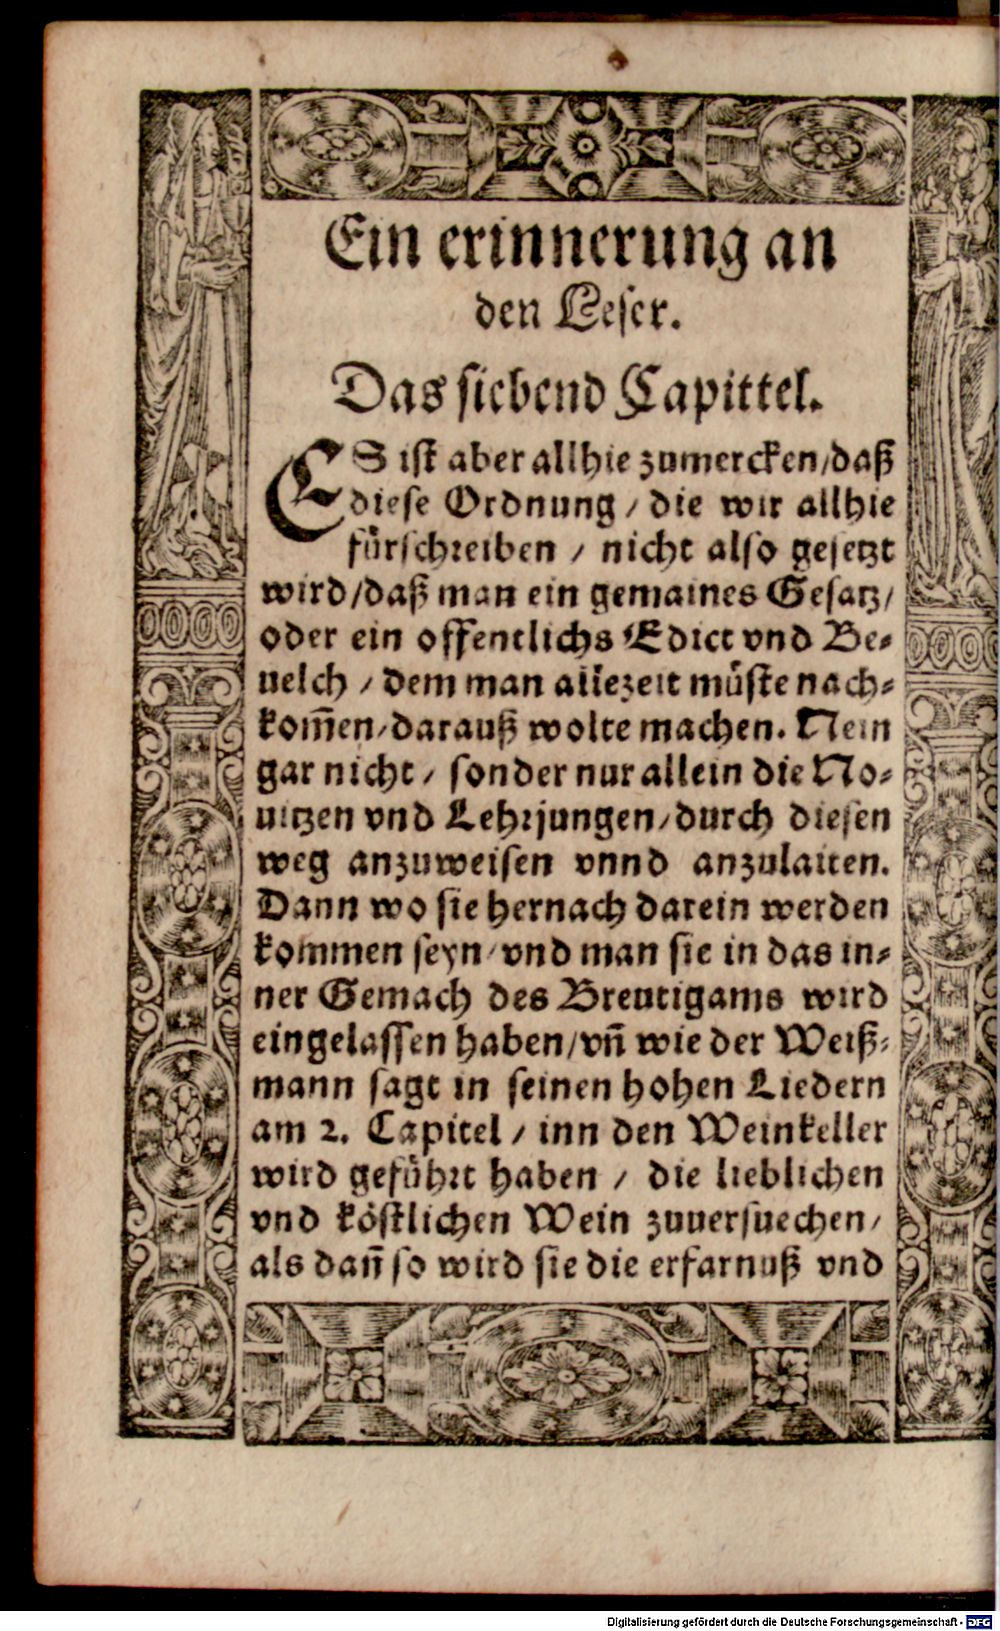 Ein erinnerung an
den Leser.
Das siebend Capittel.
ES ist aber allhie zumercken/daß
diese Ordnung / die wir allhie
fürschreiben / nicht also gesetzt
wird/daß man ein gemaines Gesatz/
oder ein offentlichs Edict vnd Be-
uelch / dem man allezeit müste nach-
kom̃en/darauß wolte machen. Nein
gar nicht / sonder nur allein die No-
uitzen vnd Lehrjungen/durch diesen
weg anzuweisen vnnd anzulaiten.
Dann wo sie hernach darein werden
kommen seyn/vnd man sie in das in-
ner Gemach des Breutigams wird
eingelassen haben/vñ wie der Weiß-
mann sagt in seinen hohen Liedern
am 2. Capitel / inn den Weinkeller
wird geführt haben / die lieblichen
vnd köstlichen Wein zuuersuechen/
als dañ so wird sie die erfarnuß vnd
Digitalisierung gefördert durch die Deutsche Forschungsgemeinschaft - DFG